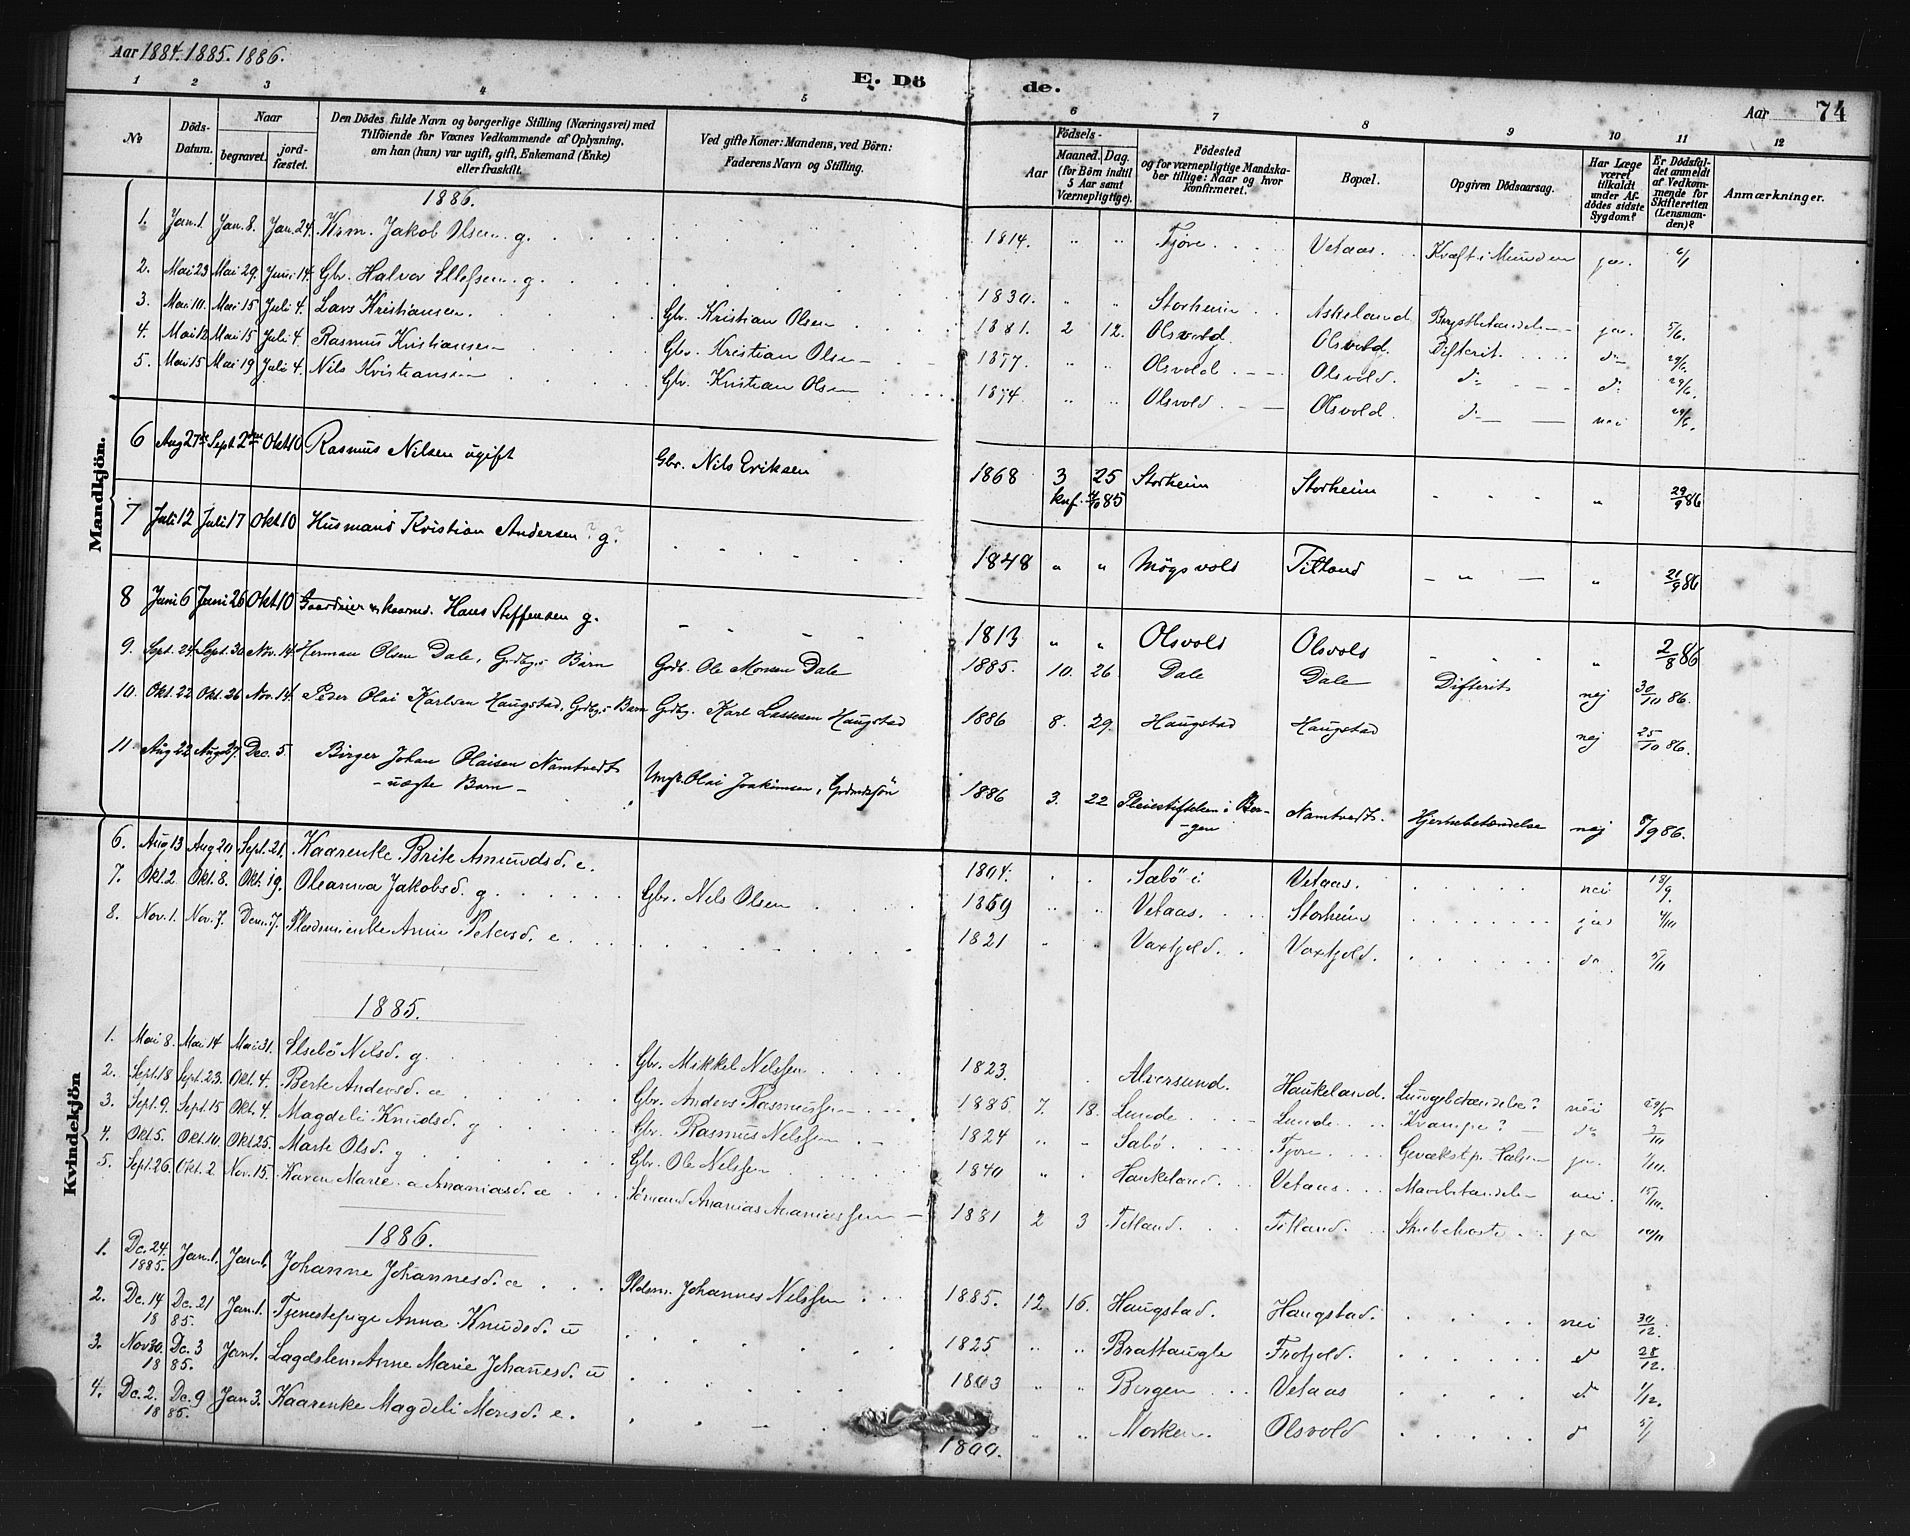 Aar 1884. 1885. 1886.
E. Dö de.
Aar 74
1 2 3 4 5 6 7 8 9 10 11 12
No
Döds-Datum.
Naar
begravet.
jord-fæstet.
Den Dödes fulde Navn og borgerlige Stilling (Næringsvei) med
Tilföiende for Voxnes Vedkommende af Oplysning,
om han (hun) var ugift, gift, Enkemand (Enke)
eller fraskilt.
Ved gifte Koner: Mandens, ved Börn:
Faderens Navn og Stilling.
Födsels-
Aar
Maaned. Dag.
(for Börn indtil
5 Aar samt
Værnepligtige).
Födested
og for værnepligtige Mandska-
ber tillige: Naar og hvor
konfirmeret.
Bopæl.
Opgiven Dödsaarsag.
Har Læge
været
tilkaldt
under Af-
dödes sidste
Sygdom?
Er Dödsfal-
det anmeldt
af Vedkom-
mende for
Skifteretten
(Lensman-
den)?
Anmærkninger.
Mandkjön.
1886.
1. Jan. 1 Jan. 8. Jan. 24. Krm. Jakob Olsen g. 1814. " " Fjöre Vetaas. Kræft i Munden ja.
2. Mai 23 Mai 29 Juni 14 Gbr. Halvor Ellefsen. g. 1830. " " Storheim Askeland ja. 5/6.
3. Mai 10. Mai 15 Juli 4. Lars Kristiansen. Gbr. Kristian Olsen 1881. 2 12. Olsvold. Olsvold. Difterit. do 29/6.
4. Mai 12 Mai 15 Juli 4. Rasmus Kristiansen Gbr. Kristian Olsen 1877. " " Olsvold Olsvold. do do 29/6.
5. Mai 15 Mai 19 Juli 4. Nils Kristiansen Gbr. Kristian Olsen 1874 " " Olsvold. Olsvold do nei 29/6.
6 Aug 27 Sept 2 Okt 10 Rasmus Nilsen ugift Gbr. Nils Eriksen 1868 3 25 Storheim Storheim " 29/9 86
knf. 4/10 85
7 Juli 12 Juli 17 Okt 10 Husmand Kristian Andersen? g? 1848 " " Mögsvold Titland " 21/9 86
8 Juni 6 Juni 26 Okt 10 Hans Steffensen g. 1813 " " Olsvold Olsvold " 2/8 86
9. Sept. 24 Sept. 30 Nov. 14 Herman Olsen Dale, Grdbgs Barn Grdb. Ole Monsen Dale 1885. 10. 26. Dale Dale Difterit nej 30/10 86.
10. Okt. 22 Okt. 26 Nov. 14. Peder Olai Karlsen Haugstad, Grdbgs Barn Grdbg. Karl Lassesen Haugstad 1886 8. 29. Haugstad Haugstad nej 25/10 86.
11. Aug 22 Aug 27. Dec. 5. Birger Johan Olaisen Namtvedt Ungk. Olai Joakimsen, Grdmdssön 1886 3. 22 Pleiestiftelsen i Ber- Namtvedt. Hjertebetændelse nej 8/9 86.
- uægte Barn -
-gen
Kvindekjön
6. Aug 13 Aug 20. Sept. 21. Kaarenke Brite Amundsd. e. 1804. Sæbö i Vetaas. nei 18/9.
7. Okt. 2 Okt. 8. Okt. 19. Oleanna Jakobsd. g. Gbr. Nils Olsen 1859 " " Vetaas. Storheim jaa 4/10
8. Nov. 1. Nov. 7. Dem. 7. Anna Petersd. e. 1821 " " Vaxtjeld. Vaxtjeld. do 5/11
1885.
1. Mai 8. Mai 14 Mai 31. Elsebö Nelsd. g. Gbr. Mikkel Nelssen 1823. Alversund. Haukeland. Lungebetændelse? nei 29/5
2. Sept. 18 Sept. 23. Okt. 4. Berte Andersd. æ Gbr. Anders Rasmussen 1885. 7. 18. Lunde Lunde Krampe? do 3/10
3. Sept. 9. Sept. 15 Okt. 4. Magdeli Knudsd. g Gbr. Rasmus Nelssen 1824 " " Sæbö. Fjöre ja. 1/10.
4. Okt. 5. Okt. 10. Okt. 25. Marte Olsd. g Gbr. Ole Nelssen 1840 " " Haukeland. Vetaas. nei. 15/10.
5. Sept. 26. Okt. 2 Nov. 15. Karen Marie Ananiasd. æ Sömand Ananias Ananiassen 1881 2 3 Titland. Titland. Strubehoste ja 10/11
1886.
1. Dc. 24. 1885. Jan. 1. Jan. 1. Johanne Johannesd. æ Pldsm. Johannes Nelssen 1885. 12 16. Haugstad. Haugstad. nei 30/12.
2. Dc. 14 Dc. 21 Jan. 1. Tjenestepige Anna Knudsd. u 1825. " " Brattaugle Frotjold. do 28/12.
18 85.
3. Nov 30. Dc. 3 Jan 1. Lagdslem Anne Marie Johanesd. u 1803 " " Bergen Vetaas do 1/12.
18 85.
4. Dc. 2. Dc. 9 Jan 3. Kaarenke Magdeli Monsd. e. 1800. " " Morken. Olsvold do 5/1
18 85.